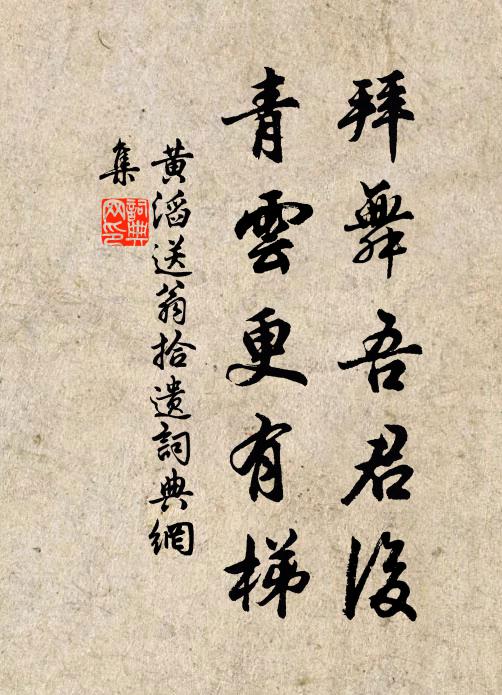 拜舞吾君後
青雲更有梯
黃滔送翁拾遺詞典網
集
詞典網印